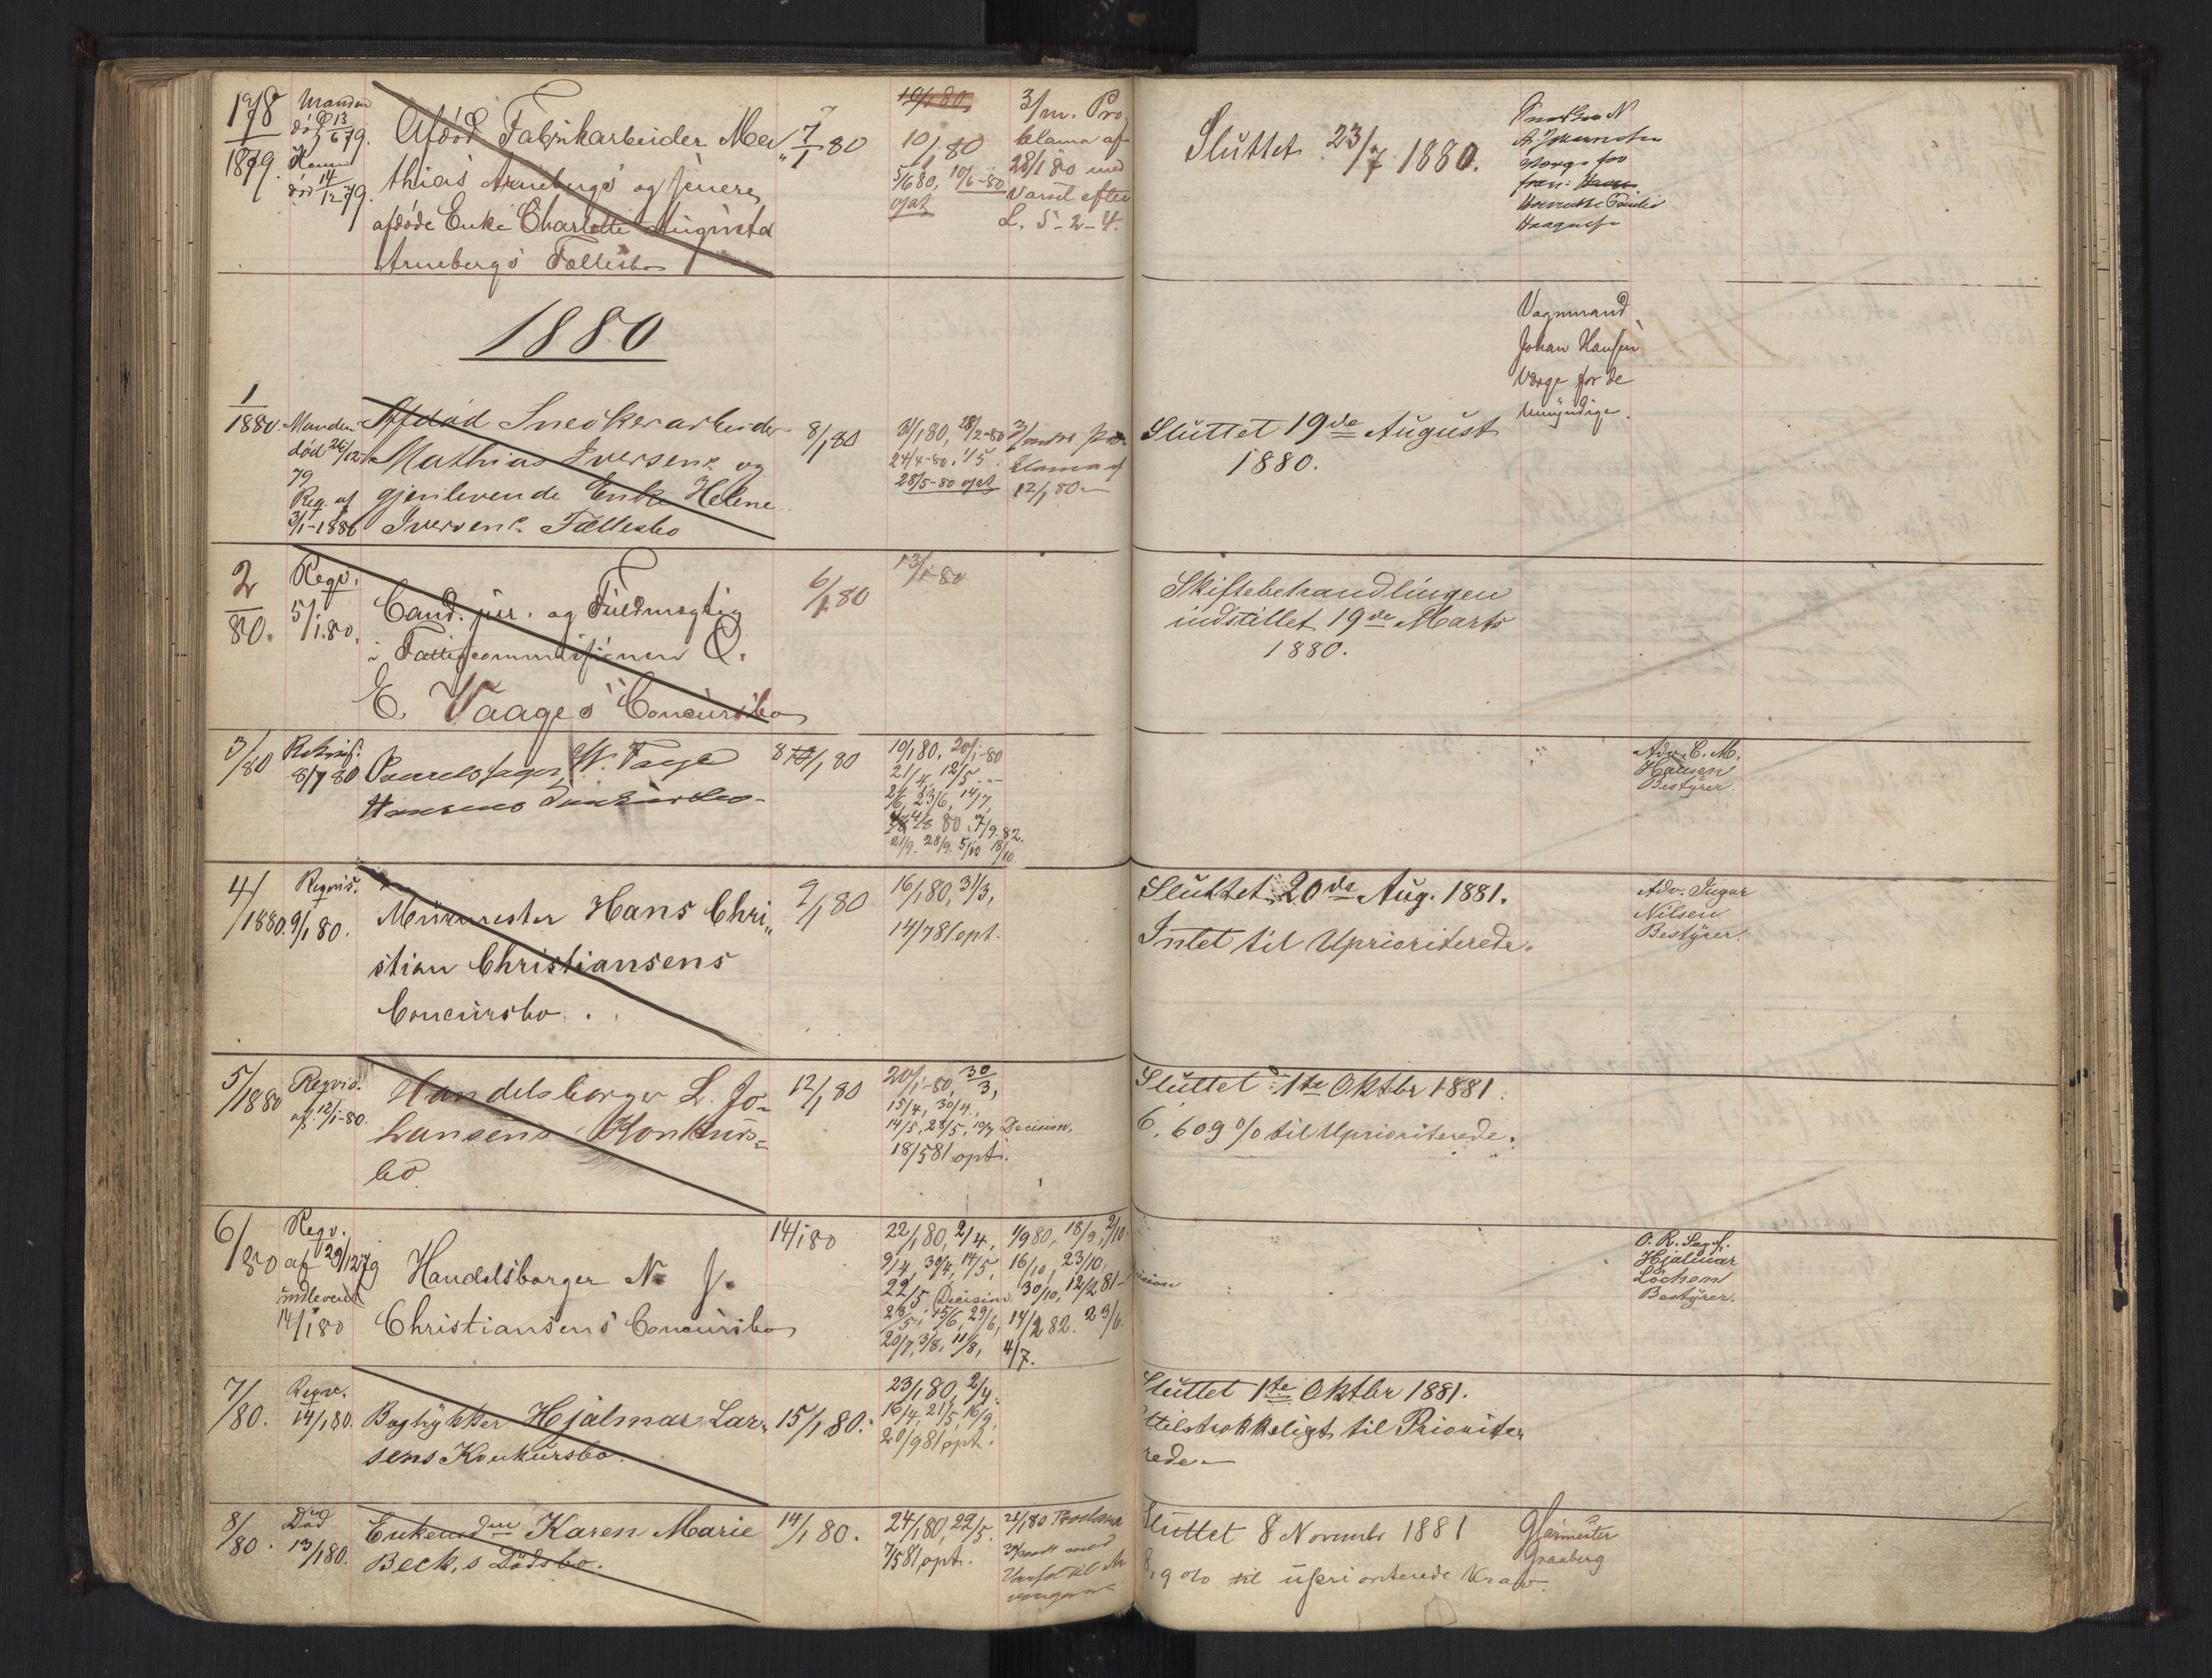 178
1879.
Manden
død 13/6 79.
Konen
død 14/12 79.
Afdød Fabrikarbeider Ma„
thias Arnebergs og senere
afdøde Enke Charlotte Augusta
Arnebergs Fællesbo
7/1 80
10/1 80
5/6 80, 10/6-80
opt
3/m. Pro
klama af
28/1 80 med
Varsel efter
L. 5-2-4.
Sluttet 23/7 1880.
Værge for
1880
1
1880.
Manden
død 26/12
79
Reg. af
3/1-1880
Afdød Snedkerarbeider
Mathias Iversens og
gjenlevende Enke Helene
Iversens Fællesbo
8/1 80
28/2-80
24/4-80.
28/5-80 opt
12/1 80
Sluttet 19de August
1880.
Vognmand
Johan Hansen
Værge for de
Umyndige.
2
80.
Reqv.
5/1.80.
Cand. jur. og Fuldmægtig
i Fattigcommissionen O.
E. Vaages Concursbo
6/1 80
13/1-80
Skiftebehandlingen
indstillet 19de Marts
1880.
3/80
8/1 80
Hansens
8/1 80
10/1 80, 20/1-80
21/4, 12/5
2/6, 23/6, 14/7,
4/8 80. 7/9.82.
21/9. 28/9. 5/10 18/10
Adv. C. M.
Hansen
Bestyrer.
4/1880
Reqvis.
9/1 80.
Murmester Hans Chri„
stian Christiansens
Concursbo.
9/1 80
16/1 80, 31/3,
14/7 81 opt.
Sluttet 20de Aug. 1881.
Intet til Uprioriterede.
Adv. Ingar
Nilsen
Bestyrer.
5/1880
Reqvis.
af 12/1-80.
Handelsborger L. Jo=
hansens Konkurs=
bo
12/1 80
20/1-80, 30/3,
15/4, 30/4,
14/5, 28/5, 10/7 Decision.
18/5 81 opt.
Sluttet 1te Oktbr 1881.
6.609% til Uprioriterede.
6/80
Reqv.
af 29/12 79
indleveret
14/1 80
Handelsborger N. J.
Christiansens Concursbo
14/1 80
22/1 80, 2/4, 1/9 80, 18/9, 2/10
9/4, 30/4, 14/5, 16/10, 23/10,
22/5 Decision 30/10, 12/2 81-
28/5, 15/6, 29/6, 14/2 82. 23/6.
20/7, 3/8, 11/8, 4/7.
O. R. Sagf.
Hjalmar
Löchen
Bestyrer.
7/80.
Reqv.
14/1 80.
Bogtrykker Hjalmar Lar„
sens Konkursbo.
15/1 80.
23/1 80, 2/4.
16/4, 21/5, 16/9,
20/9 81 opt.
Sluttet 1te Oktbr 1881.
Utilstrækkeligt til Prioriter
rede.
8/80.
Død
13/1 80.
Enkemadm Karen Marie
Becks Dødsbo.
14/1 80.
24/1 80, 22/5.
7/5 81 opt.
21/1 80 Proclama
3/mdr med
Sluttet 8 Novembr 1881
8,9 o/o til uprioriterede Krav.
Glasmester
Granberg